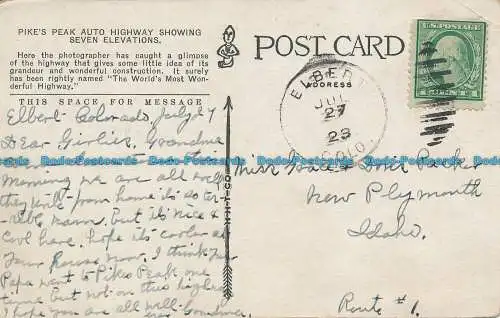 PIKE'S PEAK AUTO HIGHWAY SHOWING
SEVEN ELEVATIONS.
Here the photographer has caught a glimpse
of the highway that gives some little idea of its
grandeur and wonderful construction. It surely
has been rightly named "The World's Most Won-
derful Highway."
THIS SPACE FOR MESSAGE
Elbert Colorado, July 27
Dear Girlies. Grandma
morning we are all well
they write from home it's so ter-
rible warm. but it's nice &
cool here. hope its cooler at
your house now. I think your
Papa went to Pikes Peak one
time but not on this highway
I hope you are all well.
H-H-T-CO.
POST CARD
ADDRESS
ELBERT
JUL
27
23
COLO.
U.S. POSTAGE
1
Miss Grace & Parker
New Plymouth
Idaho.
Route #1.
Bado-Postcards Bado-Postcards Bado-Postcards Bado-Postcards Bado-Postcards
Bado-Postcards Bado-Postcards Bado-Postcards Bado-Postcards Bado-Postcards